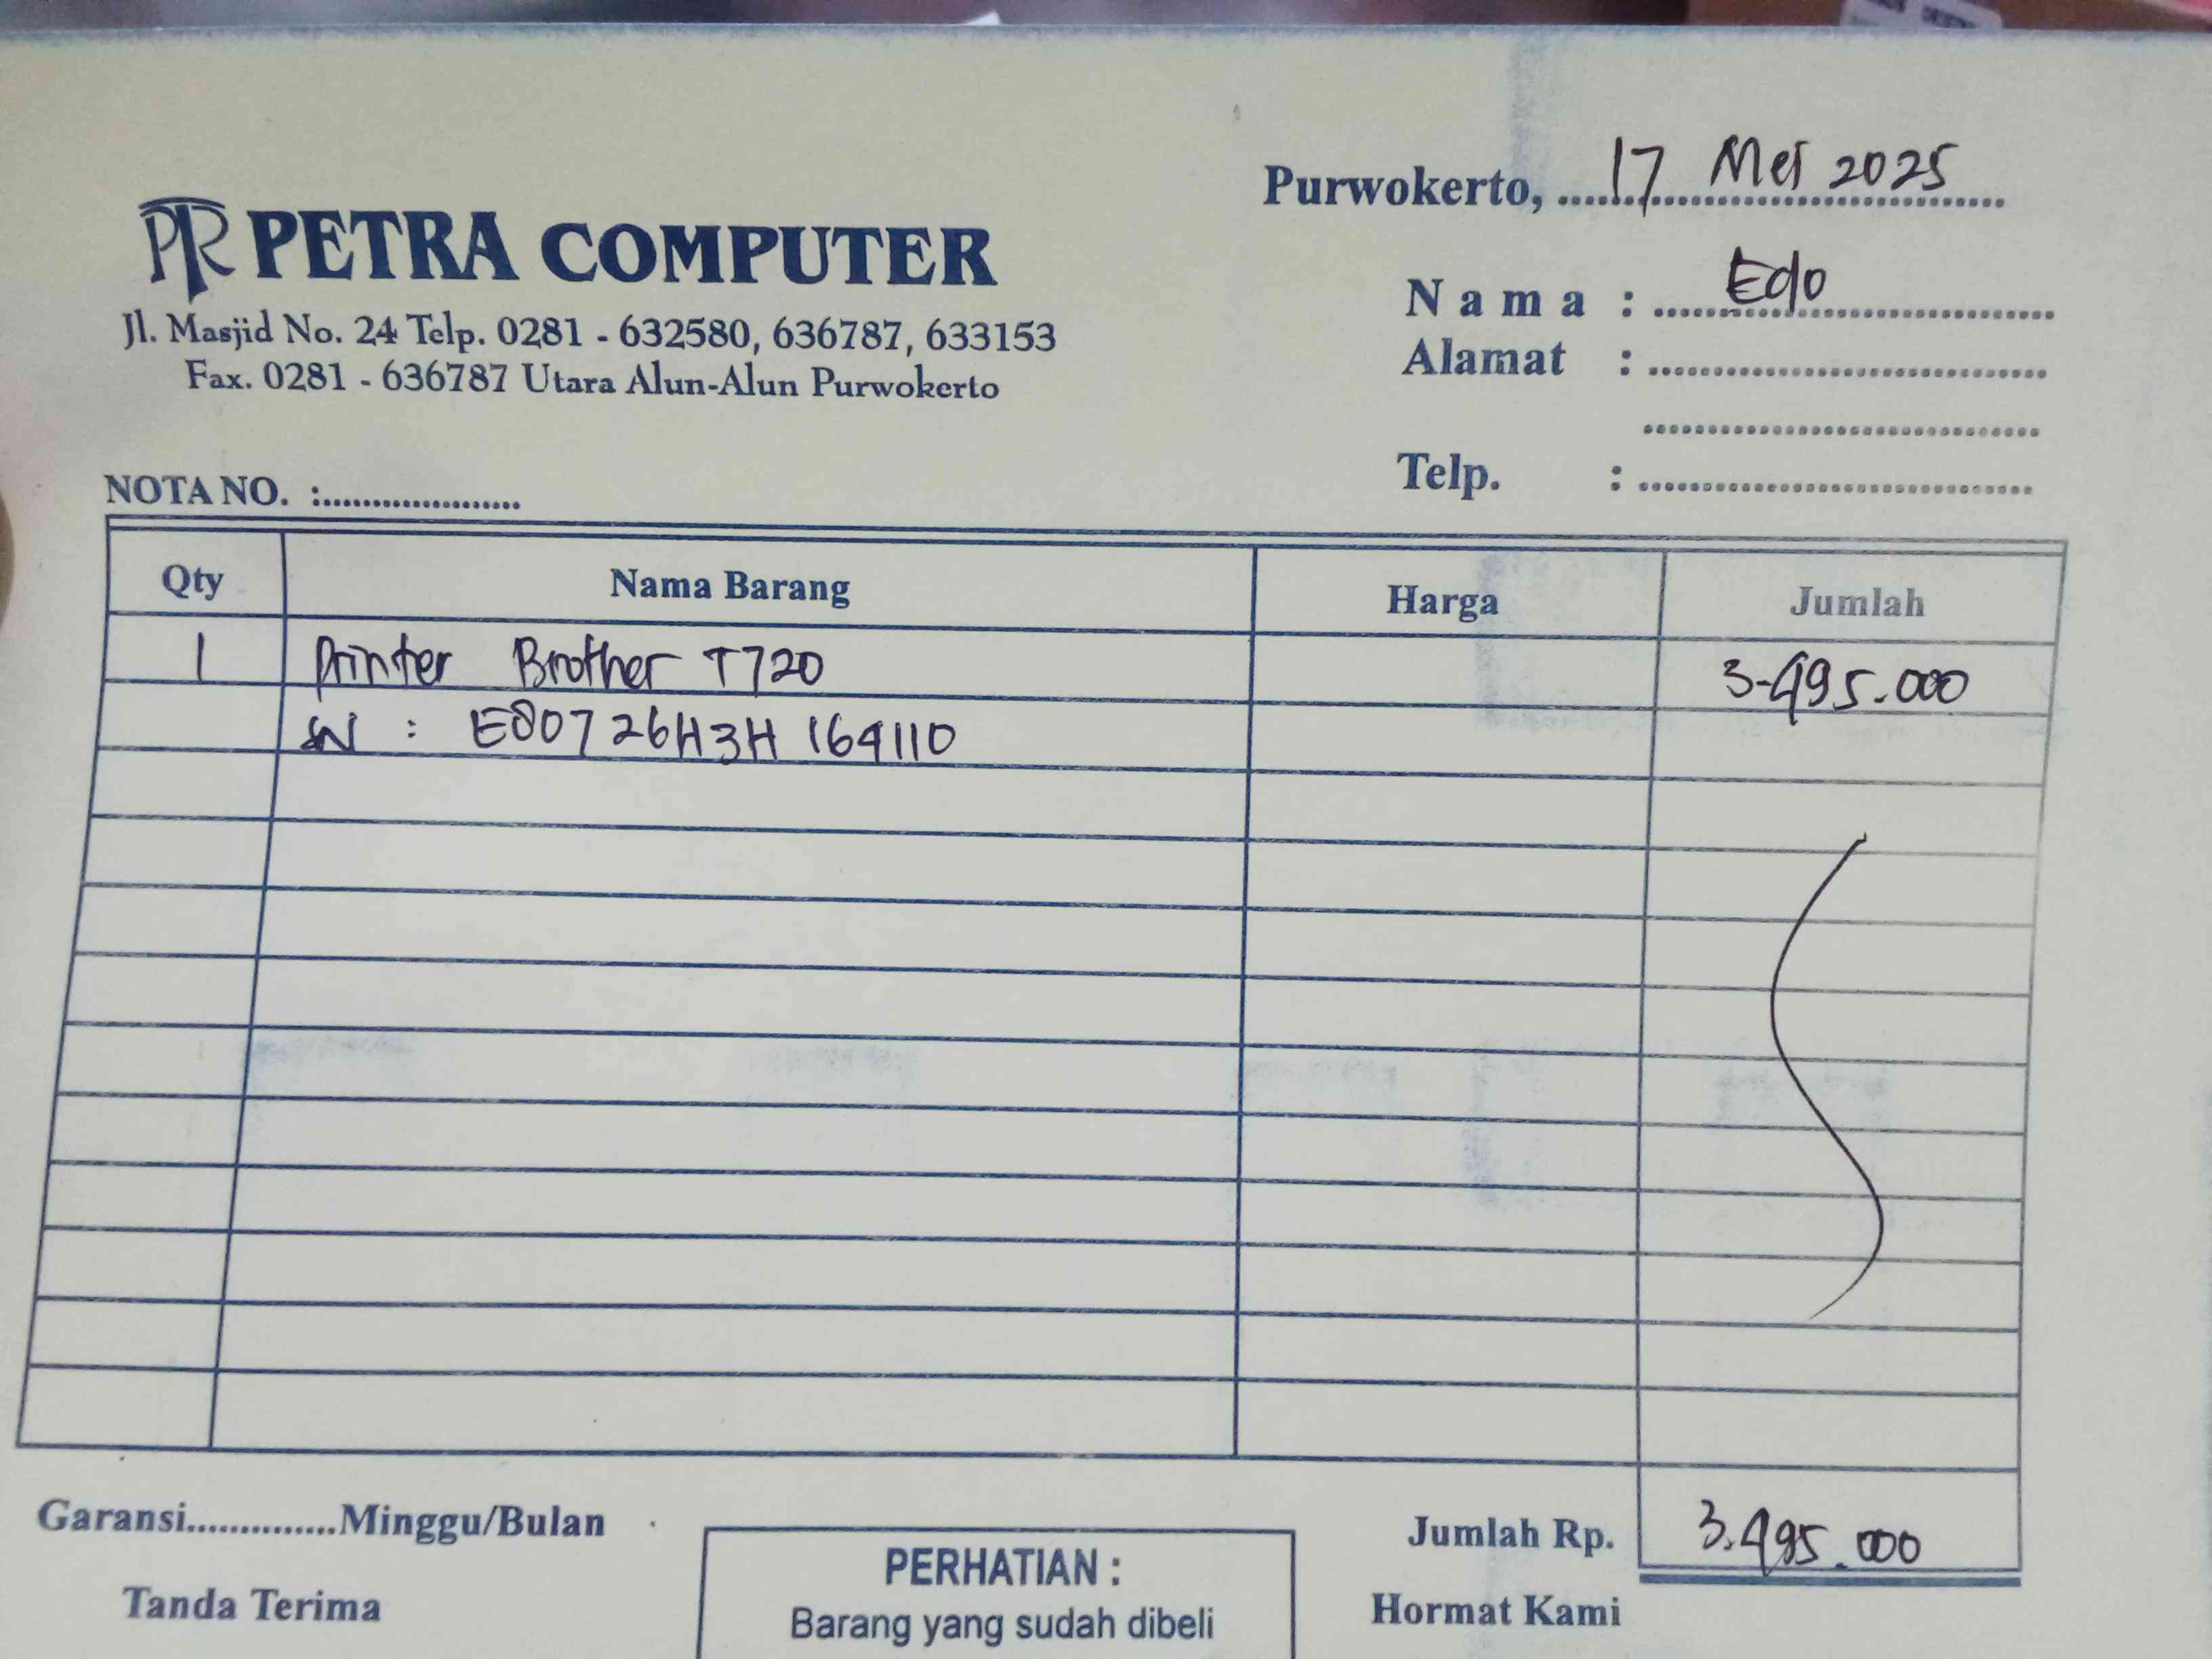 Purwokerto, 17 Mei 2025
PETRA COMPUTER
Jl. Masjid No. 24 Telp. 0281 - 632580, 636787, 633153
Fax. 0281 - 636787 Utara Alun-Alun Purwokerto
Nama : Edo
Alamat :
Telp. :
NOTA NO. :
Qty Nama Barang Harga Jumlah
1 Printer Brother T720 3.495.000
SN : E80726H3H164110
Garansi..............Minggu/Bulan
Jumlah Rp. 3.495.000
Tanda Terima
PERHATIAN :
Barang yang sudah dibeli
Hormat Kami